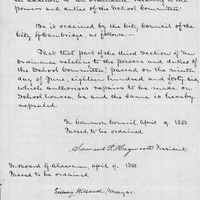 powers and duties of the School Committee
Be it ordained by the City Council of the
City of Cambridge, as follows:—
That that part of the third Section of "An
ordinance relating to the powers and duties of
the School Committee", passed on the ninth
day of June, eighteen hundred and forty six,
which authorises repairs to be made on
School houses, be and the same is hereby
repealed.
In Common Council April 9. 1850
Passed to be ordained.
Samuel P. Heywood President.
In Board of Aldermen, April 9. 1850.
Passed to be ordained
Sidney Willard, Mayor.